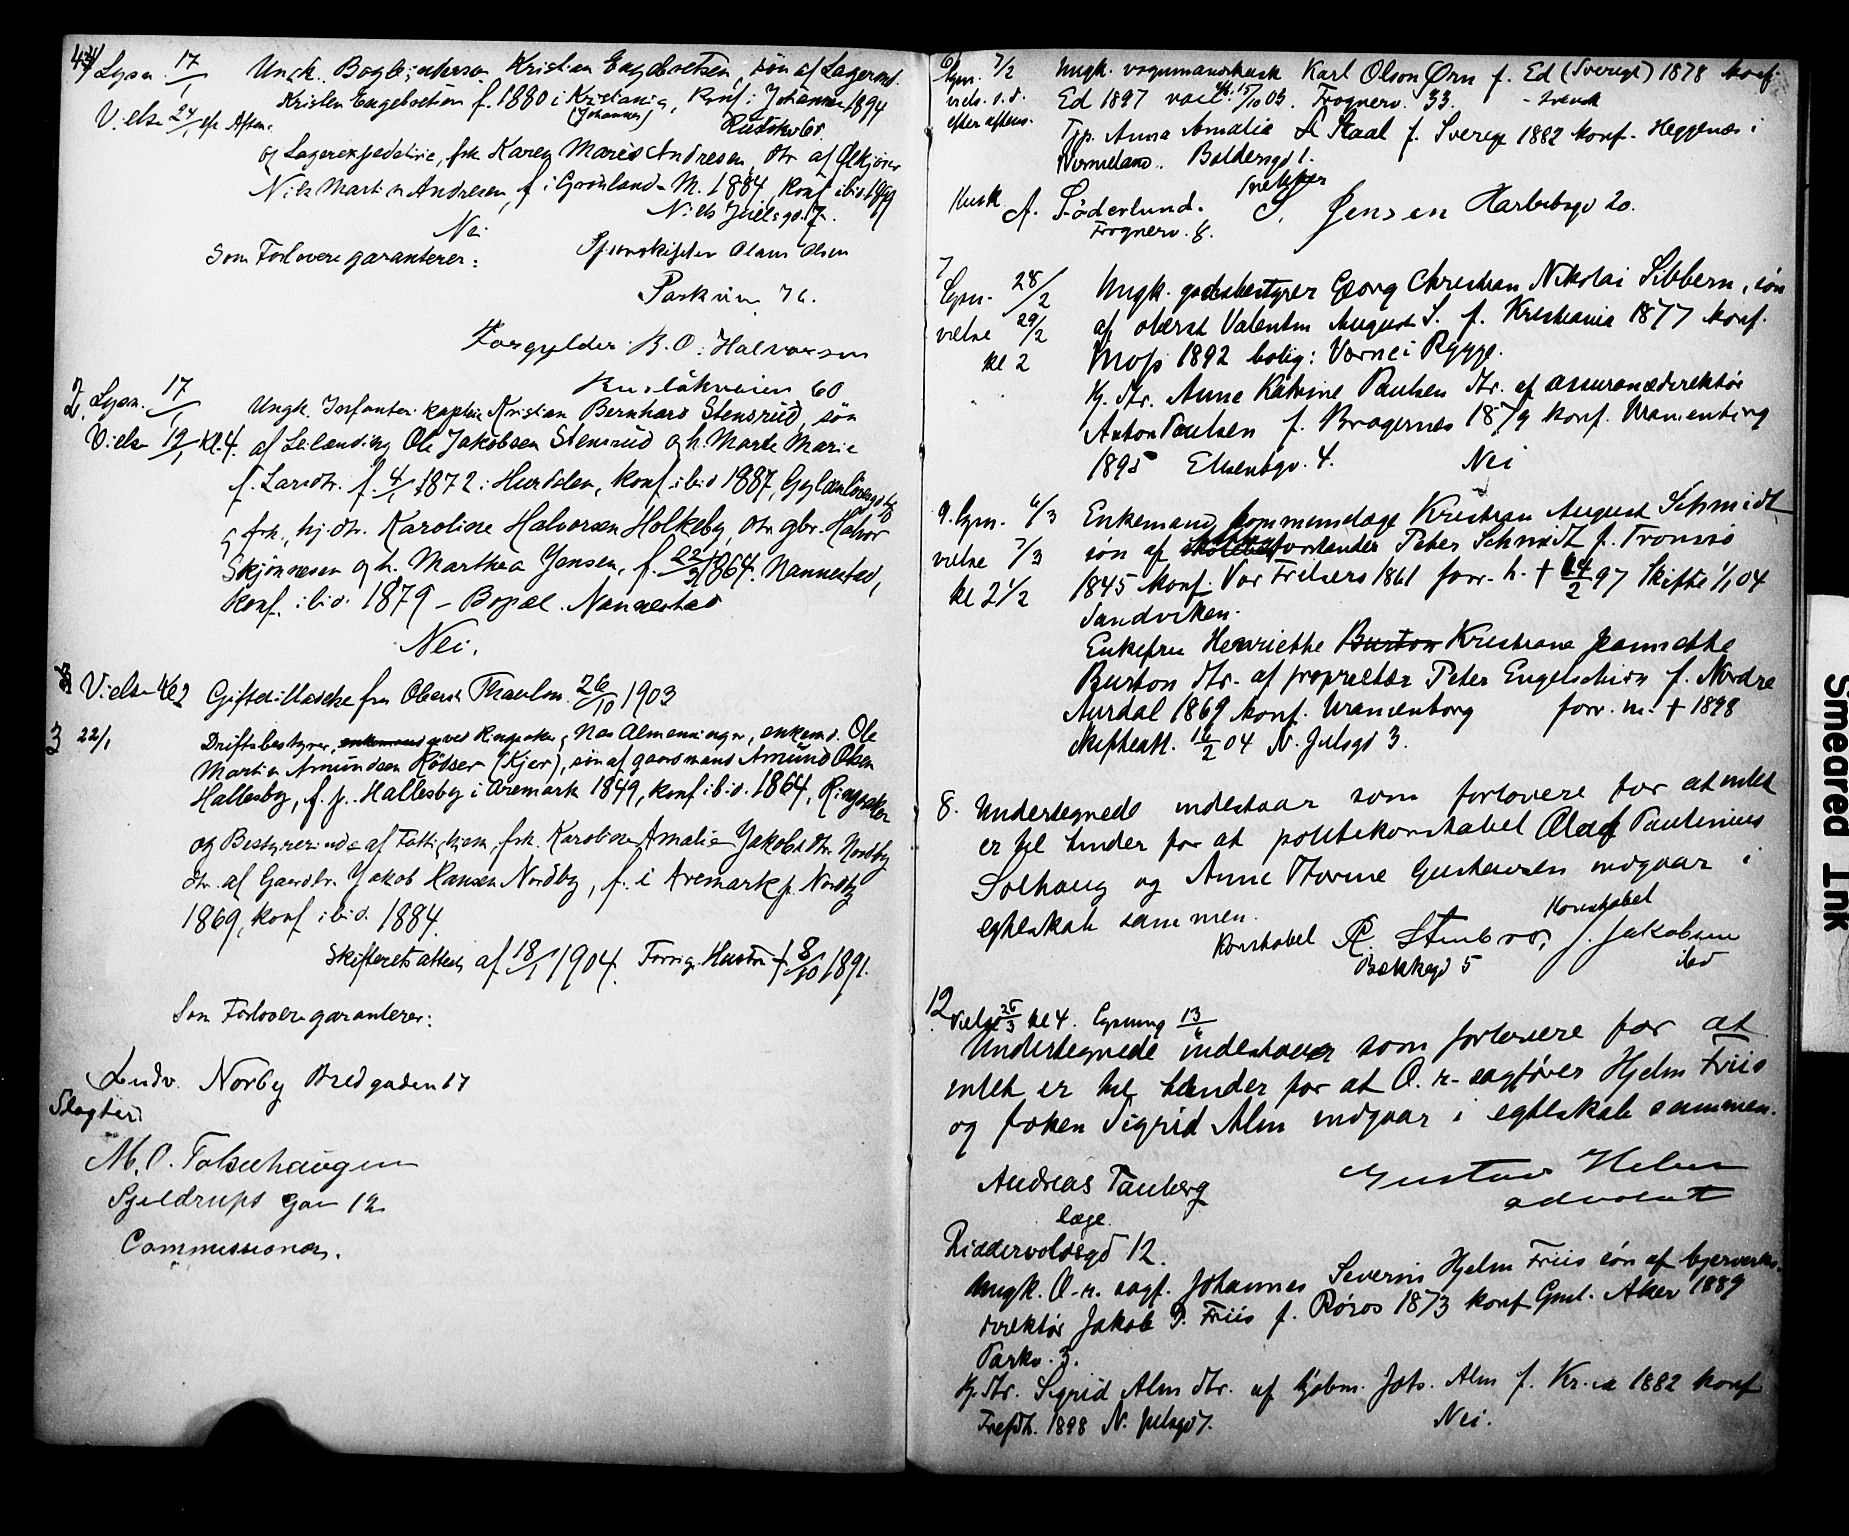 4 Lysn. 17/1 Ungk. Bogbindersv. Kristian Engebretsen, søn af Lagerend.
Vielse 24/1 efr. Aften. Kristen Engebretsen f. 1880 i Kristiania, Konf. i Johannes 1894
(Johannes) Rustökv 60
og Lagerexpeditrice, frk. Karen Marie Andresen, dtr. af
Niels Martin Andresen, f. i Grønland M. 1884, Konf. ibid 1899
Niels Juelsgd. 7.
Nei
Som Forlovere garanterer: Olaus Olsen
Parkvn. 7c.
Forgylder B. O. Halvorsen
Ruslökveien 60
2. Lysn. 17/1 Ungk. Infanteri kaptein Kristian Bernhard Stensrud, søn
Vielse 19/1 Kl. 4. af Leilænding Ole Jakobsen Stensrud og h. Marte Marie
f. Larsdtr. f. 4/1 1872 i Hurdalen, konf. ibid 1887, Gyldenløvesgd
og frk., hj. dtr. Karoline Halvorsen Holkeby, dtr. gbr. Halvor
Skjønnesen og h. Marthea Jensen, f. 22/9 1864. Nannestad,
Konf. ibid. 1879 - Bopæl. Nannestad
Nei.
3 Vielse Kl 2 Giftetilladelse fra Oberst Thaulow 26/10 1903
3 22/1 Driftsbestyrer, enkemand ved Ringsaker, Næs Almenninger, enkemd. Ole
Martin Amundsen Rödser (Kjer), søn af gaardmand Amund Olsen
Hallesby, f. p. Hallesby i Aremark 1849, konf. ibid. 1864, Ringsaker
og Bestyrerinde af Fattighjem, frk. Karoline Amalie Jakobsdtr. Nordby
dtr. af Gaardbr. Jakob Hansen Nordby, f. i Aremark p. Nordby
1869, konf. ibid. 1884.
Skifteretsattest af 18/1 1904. Forrige Hustru † 8/10 1891.
Som Forlovere garanterer:
Ludv. Norby Bredgaden 17
Slagter
M. O. Tolsehaugen
Sjeldrups Gar 12
Commissioner.
6/ Lysn. 7/2 Ungk. vognmandskusk Karl Olson Örn f. Ed (Sverige) 1878 konf.
viels. s. d. Ed 1897 vacc. 15/10 03. Frognerv. 33. - svensk
efter aftens. Tjp. Anna Amalia Staal f. Sverige 1882 konf. Heggenæs i
Vermeland. Baldersgd 1.
Kusk A. Söderlund. Snekker S. Jensen Harbitzgd 20.
Frognerv. 8.
7
Lysn. 28/2 Ungk. godsbestyrer Georg Christian Nikolai Sibbern, søn
vielse 29/2 af oberst Valentin August S. f. Kristiania 1877 konf.
kl 2 Moss 1892 bolig: Værne i Rygge.
Hj. dtr. Anne Katrine Paulsen dtr. af assurancedirektør
Anton Paulsen f. Bragernes 1879 konf. Uranienborg
1895 Elisenbgv. 4. Nei
9. Lysn. 6/3 Enkemand, kommunelæge Kristian August Schmidt
vielse 7/3 søn af forstander Peter Schmidt f. Tromsø
kl 2 1/2 1845 konf. Vor Frelsers 1861 forr. h. † 14/2 97 Skifte 1/1 04
Sandviken.
Enkefru Henriette Burton Kristiane Jeannette
Burton dtr. af proprietær Peter Engelschiøn f. Nordre
Aurdal 1869 konf. Uranienborg forr. m. † 1898
skifteatt. 16/2 04 N. Julsgd 3.
8. Undertegnede indestaar som forlovere for at intet
er til hinder for at politikonstabel Olaf Paulinius
Solhaug og Anne Thorine Gustavsen indgaar i
egteskab sammen.
Konstabel R. Stenbro, Konstabel J. Jakobsen
Bakkegd 5 ibid
12. Vielse 25/3 kl 4. Lysning 13/6
Undertegnede indestaaer som forlovere for at
intet er til hinder for at O. r. sagfører Hjelm Friis
og frøken Sigrid Alm indgaar i egteskab sammen.
Andreas Tanberg Gustav Heber
læge. advokat
Riddervoldsgd 12.
Ungk. O. r. sagf. Johannes Severin Hjelm Friis søn af bergverks-
direktør Jakob P. Friis f. Røros 1873 konf. Gml. Aker 1889
Parkv. 3.
Hj. dtr. Sigrid Alm dtr. af kjøbm. Johs. Alm f. Kr.ia 1882 konf
Trefdh. 1898 N. Julsgd 7. Nei.
Smeared Ink